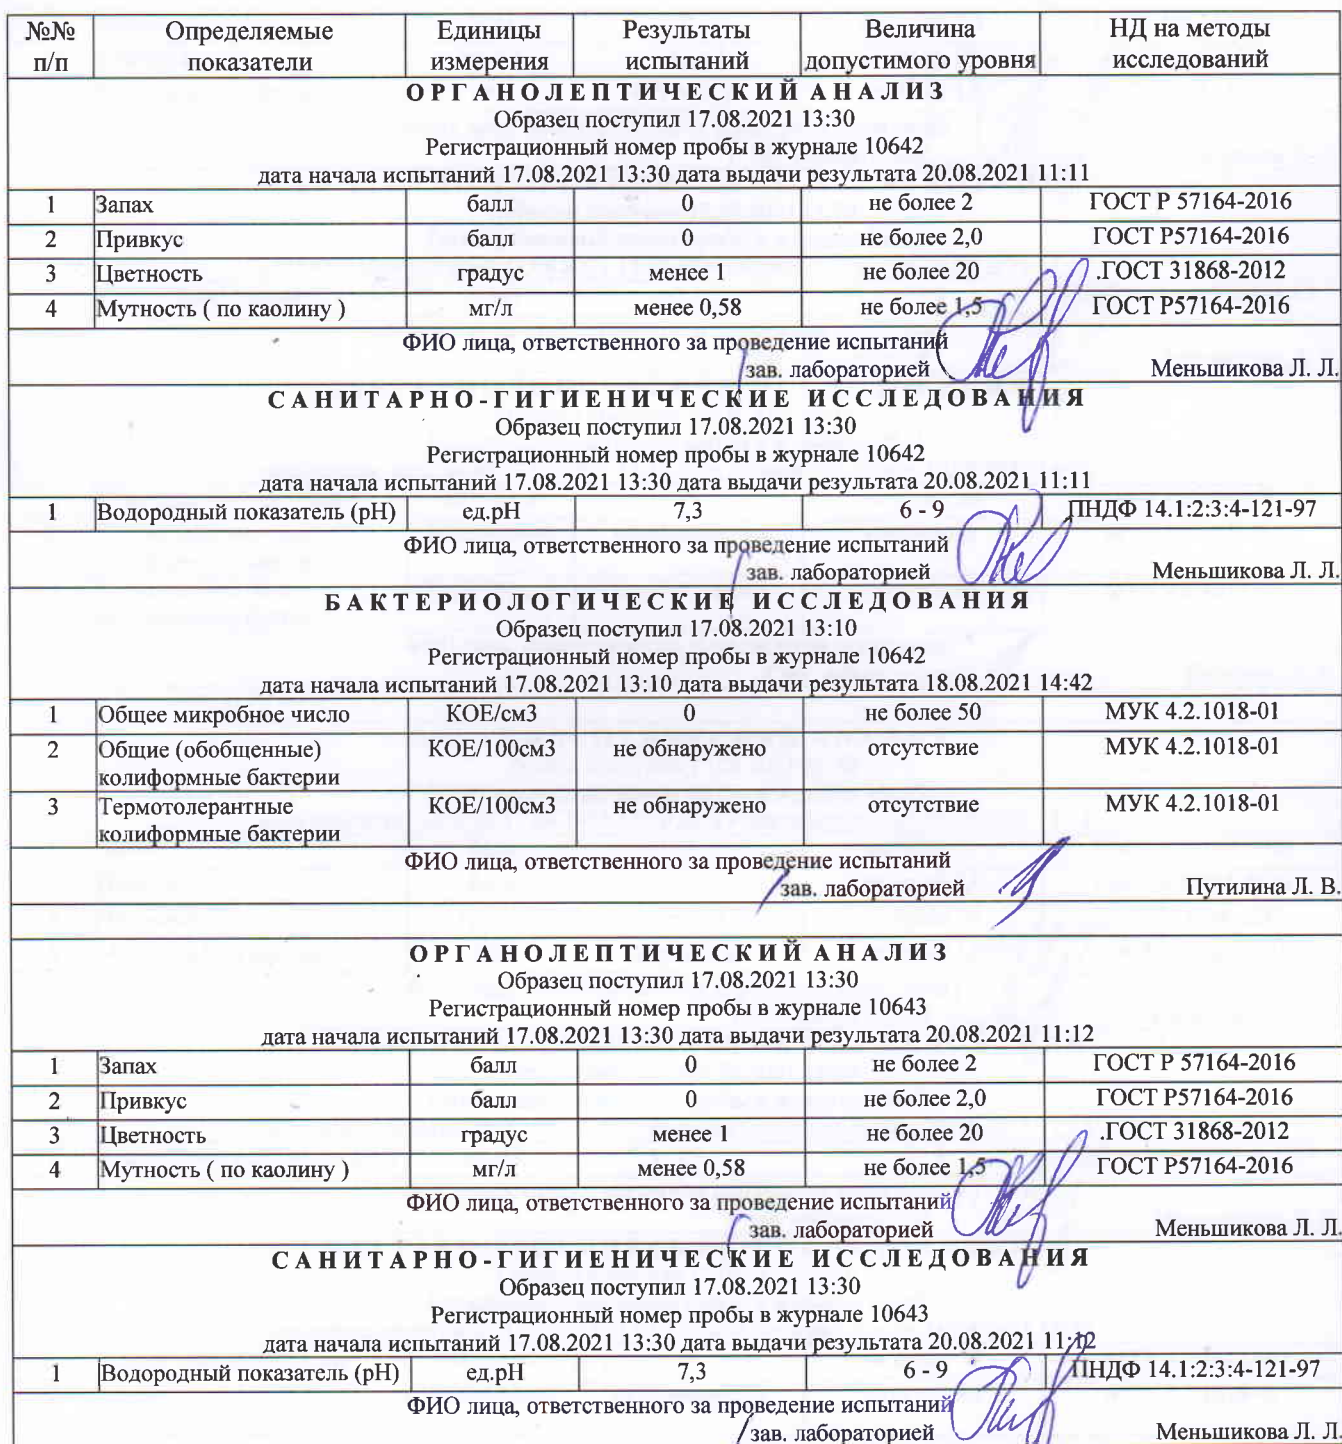 №№ п/п Определяемые показатели Единицы измерения Результаты испытаний Величина допустимого уровня НД на методы исследований
ОРГАНОЛЕПТИЧЕСКИЙ АНАЛИЗ
Образец поступил 17.08.2021 13:30
Регистрационный номер пробы в журнале 10642
дата начала испытаний 17.08.2021 13:30 дата выдачи результата 20.08.2021 11:11
1 Запах балл 0 не более 2 ГОСТ Р 57164-2016
2 Привкус балл 0 не более 2,0 ГОСТ Р57164-2016
3 Цветность градус менее 1 не более 20 .ГОСТ 31868-2012
4 Мутность ( по каолину ) мг/л менее 0,58 не более 1,5 ГОСТ Р57164-2016
ФИО лица, ответственного за проведение испытаний
зав. лабораторией Меньшикова Л. Л.
САНИТАРНО-ГИГИЕНИЧЕСКИЕ ИССЛЕДОВАНИЯ
Образец поступил 17.08.2021 13:30
Регистрационный номер пробы в журнале 10642
дата начала испытаний 17.08.2021 13:30 дата выдачи результата 20.08.2021 11:11
1 Водородный показатель (рН) ед.рН 7,3 6 - 9 ПНДФ 14.1:2:3:4-121-97
ФИО лица, ответственного за проведение испытаний
зав. лабораторией Меньшикова Л. Л.
БАКТЕРИОЛОГИЧЕСКИЕ ИССЛЕДОВАНИЯ
Образец поступил 17.08.2021 13:10
Регистрационный номер пробы в журнале 10642
дата начала испытаний 17.08.2021 13:10 дата выдачи результата 18.08.2021 14:42
1 Общее микробное число КОЕ/см3 0 не более 50 МУК 4.2.1018-01
2 Общие (обобщенные) колиформные бактерии КОЕ/100см3 не обнаружено отсутствие МУК 4.2.1018-01
3 Термотолерантные колиформные бактерии КОЕ/100см3 не обнаружено отсутствие МУК 4.2.1018-01
ФИО лица, ответственного за проведение испытаний
зав. лабораторией Путилина Л. В.
ОРГАНОЛЕПТИЧЕСКИЙ АНАЛИЗ
Образец поступил 17.08.2021 13:30
Регистрационный номер пробы в журнале 10643
дата начала испытаний 17.08.2021 13:30 дата выдачи результата 20.08.2021 11:12
1 Запах балл 0 не более 2 ГОСТ Р 57164-2016
2 Привкус балл 0 не более 2,0 ГОСТ Р57164-2016
3 Цветность градус менее 1 не более 20 .ГОСТ 31868-2012
4 Мутность ( по каолину ) мг/л менее 0,58 не более 1,5 ГОСТ Р57164-2016
ФИО лица, ответственного за проведение испытаний
зав. лабораторией Меньшикова Л. Л.
САНИТАРНО-ГИГИЕНИЧЕСКИЕ ИССЛЕДОВАНИЯ
Образец поступил 17.08.2021 13:30
Регистрационный номер пробы в журнале 10643
дата начала испытаний 17.08.2021 13:30 дата выдачи результата 20.08.2021 11:12
1 Водородный показатель (рН) ед.рН 7,3 6 - 9 ПНДФ 14.1:2:3:4-121-97
ФИО лица, ответственного за проведение испытаний
зав. лабораторией Меньшикова Л. Л.